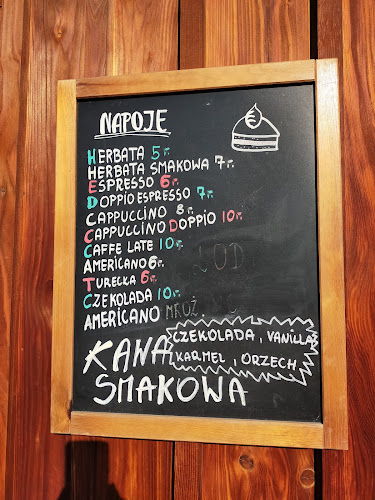 NAPOJE
HERBATA 5 zł.
HERBATA SMAKOWA 7 zł.
ESPRESSO 6 zł.
DOPPIO ESPRESSO 7 zł.
CAPPUCCINO 8 zł.
CAPPUCCINO DOPPIO 10 zł.
CAFFE LATE 10 zł.
AMERICANO 6 zł.
TURECKA 6 zł.
CZEKOLADA 10 zł.
AMERICANO MROŻ.
KAWA
SMAKOWA
CZEKOLADA, VANILLA
KARMEL, ORZECH